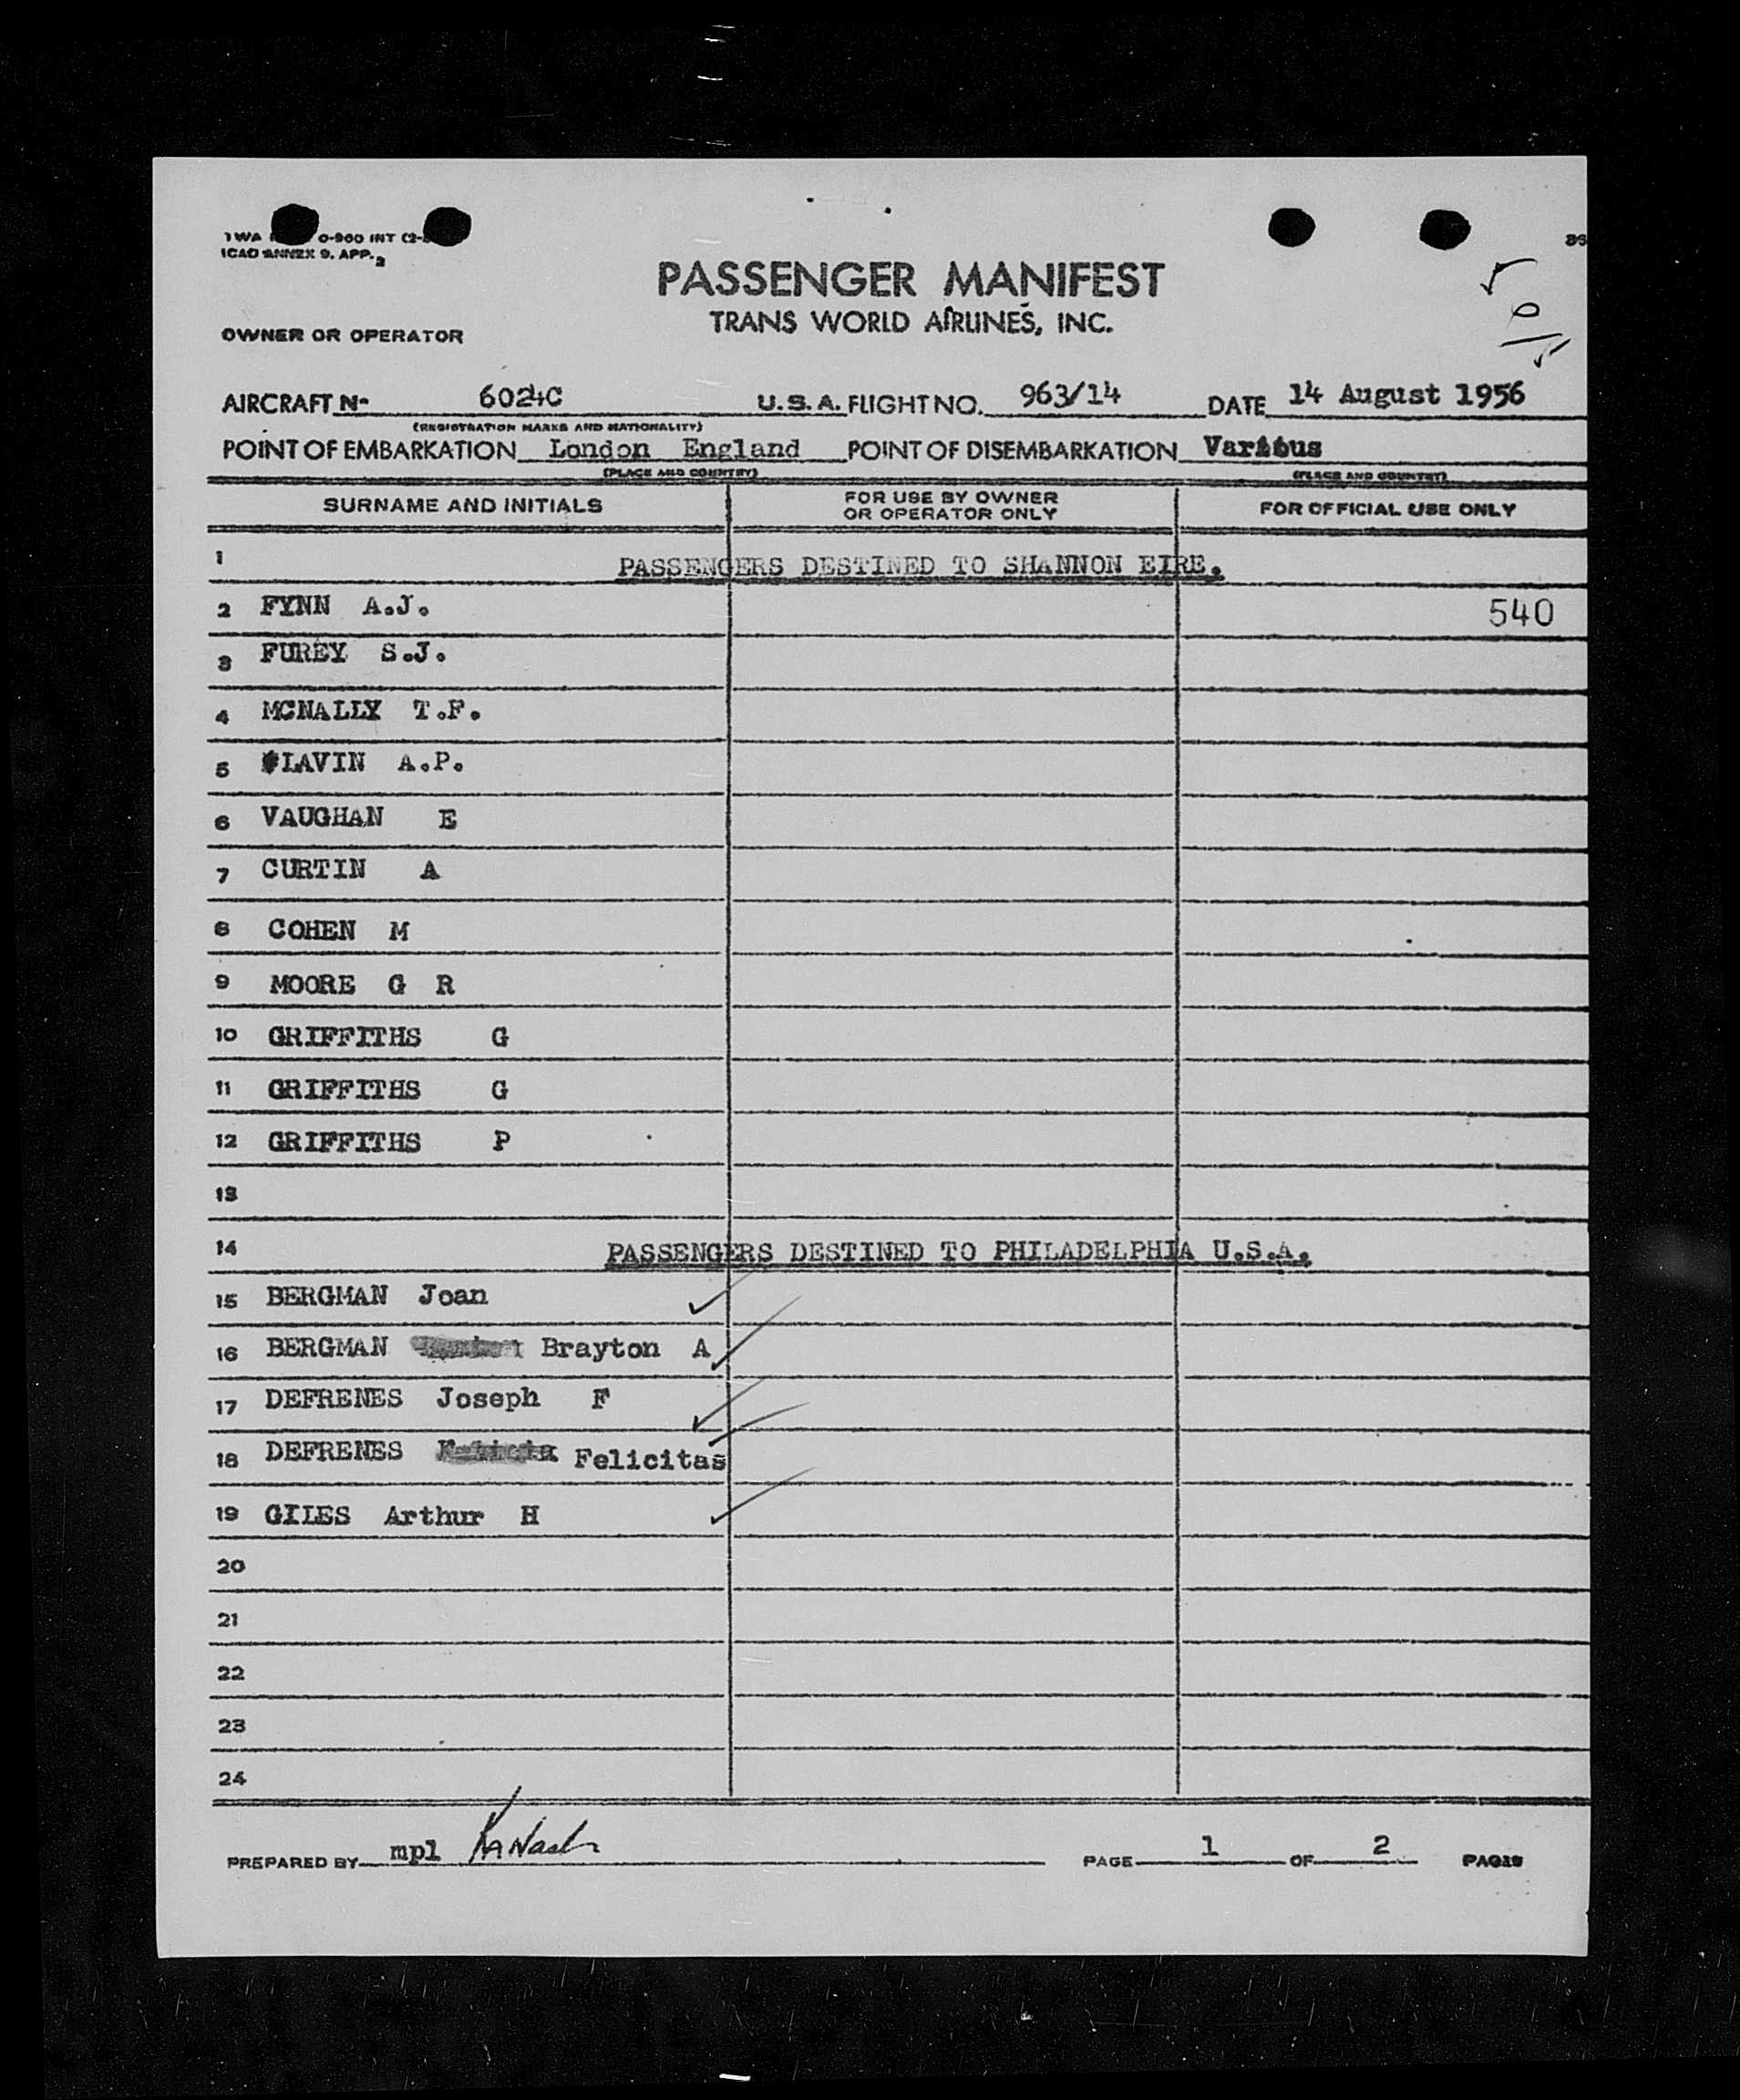 TWA 0-900 INT (2-
ICAO ANNEX 9. APP. 2
PASSENGER MANIFEST
TRANS WORLD AIRLINES, INC.
OWNER OR OPERATOR
AIRCRAFT No 6024C U.S.A. FLIGHT NO. 963/14 DATE 14 August 1956
(REGISTRATION MARKS AND NATIONALITY)
POINT OF EMBARKATION London England POINT OF DISEMBARKATION Various
(PLACE AND COUNTRY) (PLACE AND COUNTRY)
SURNAME AND INITIALS FOR USE BY OWNER OR OPERATOR ONLY FOR OFFICIAL USE ONLY
1 PASSENGERS DESTINED TO SHANNON EIRE.
2 FYNN A.J. 540
3 FUREY S.J.
4 MCNALLY T.F.
5 LAVIN A.P.
6 VAUGHAN E
7 CURTIN A
8 COHEN M
9 MOORE G R
10 GRIFFITHS G
11 GRIFFITHS G
12 GRIFFITHS P
13
14 PASSENGERS DESTINED TO PHILADELPHIA U.S.A.
15 BERGMAN Joan
16 BERGMAN Brayton A
17 DEFRENES Joseph F
18 DEFRENES Felicitas
19 GILES Arthur H
20
21
22
23
24
PREPARED BY mpl PAGE 1 OF 2 PAGES